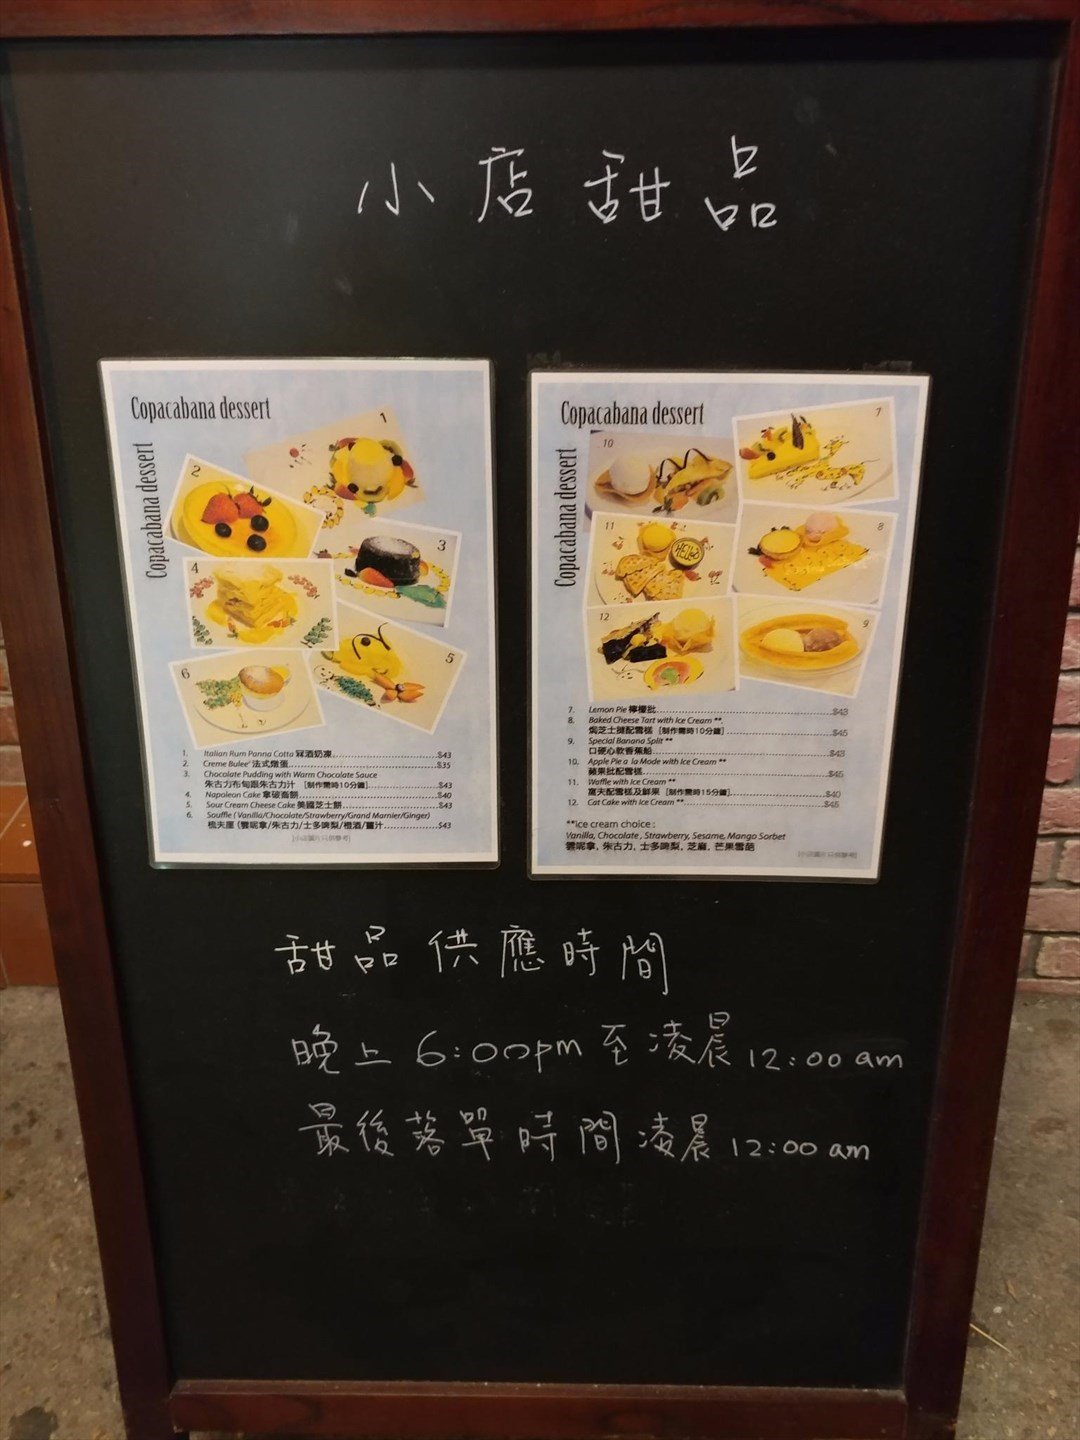 小店甜品
Copacabana dessert
Copacabana dessert
1
2
3
4
5
6
1. Italian Rum Panna Cotta 冧酒奶凍 $43
2. Creme Bulee' 法式燉蛋 $35
3. Chocolate Pudding with Warm Chocolate Sauce
朱古力布甸跟朱古力汁 [制作需時10分鐘] $43
4. Napoleon Cake 拿破崙餅 $40
5. Sour Cream Cheese Cake 美國芝士餅 $43
6. Souffle (Vanilla/Chocolate/Strawberry/Grand Marnier/Ginger)
梳夫厘 (雲呢拿/朱古力/士多啤梨/橙酒/薑汁 $43
[小店圖片只供參考]
Copacabana dessert
Copacabana dessert
10
7
11
HELLO
8
12
9
7. Lemon Pie 檸檬批 $43
8. Baked Cheese Tart with Ice Cream **
焗芝士撻配雪糕 [制作需時10分鐘] $45
9. Special Banana Split **
口硬心軟香蕉船 $43
10. Apple Pie a la Mode with Ice Cream **
蘋果批配雪糕 $45
11. Waffle with Ice Cream **
窩夫配雪糕及鮮果 [制作需時15分鐘] $40
12. Cat Cake with Ice Cream ** $45
**ice cream choice :
Vanilla, Chocolate, Strawberry, Sesame, Mango Sorbet
雲呢拿, 朱古力, 士多啤梨, 芝麻, 芒果雪酷
[小店圖片只供參考]
甜品供應時間
晚上 6:00pm 至凌晨 12:00 am
最後落單時間凌晨 12:00 am